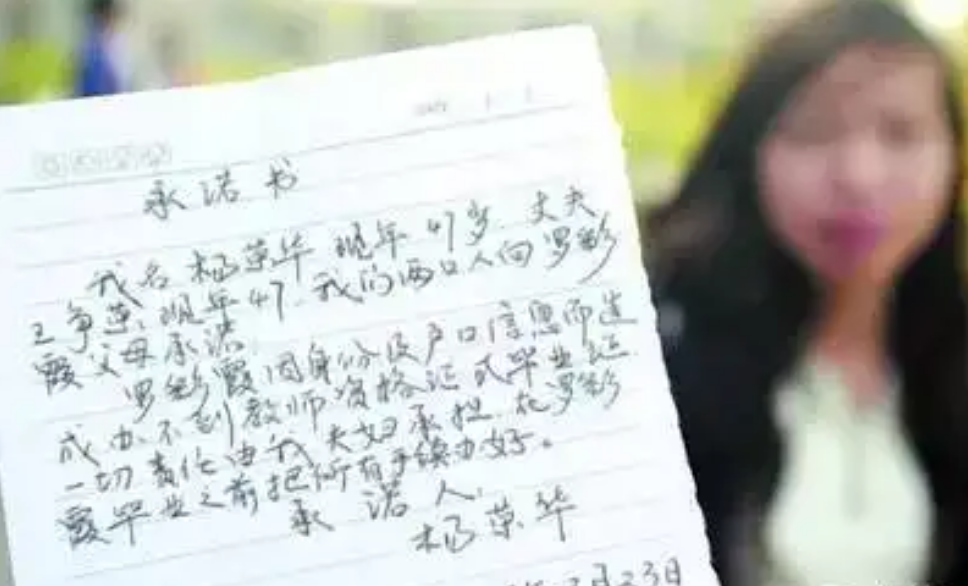 承诺书
我名杨荣华现年47岁.丈夫
王争英,现年47.我们两口人向罗彩
霞父母承诺.
罗彩霞因身份及户口信息而造
成办不到教师资格证或毕业证.
一切责任由我夫妇承担.在罗彩
霞毕业之前把所有手续办好。
承诺人.
杨荣华
月23日